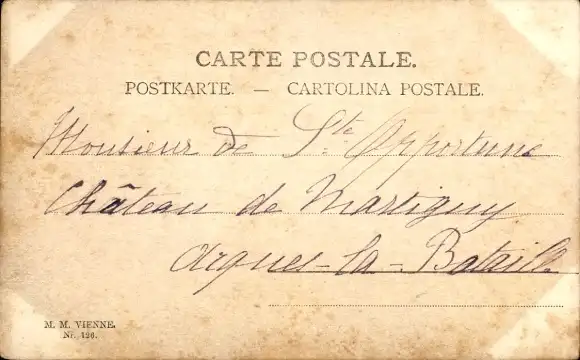 CARTE POSTALE.
POSTKARTE. — CARTOLINA POSTALE.
Monsieur de Ste Opportune
Château de Martigny
Arques-la-Bataille
M. M. VIENNE.
Nr. 126.